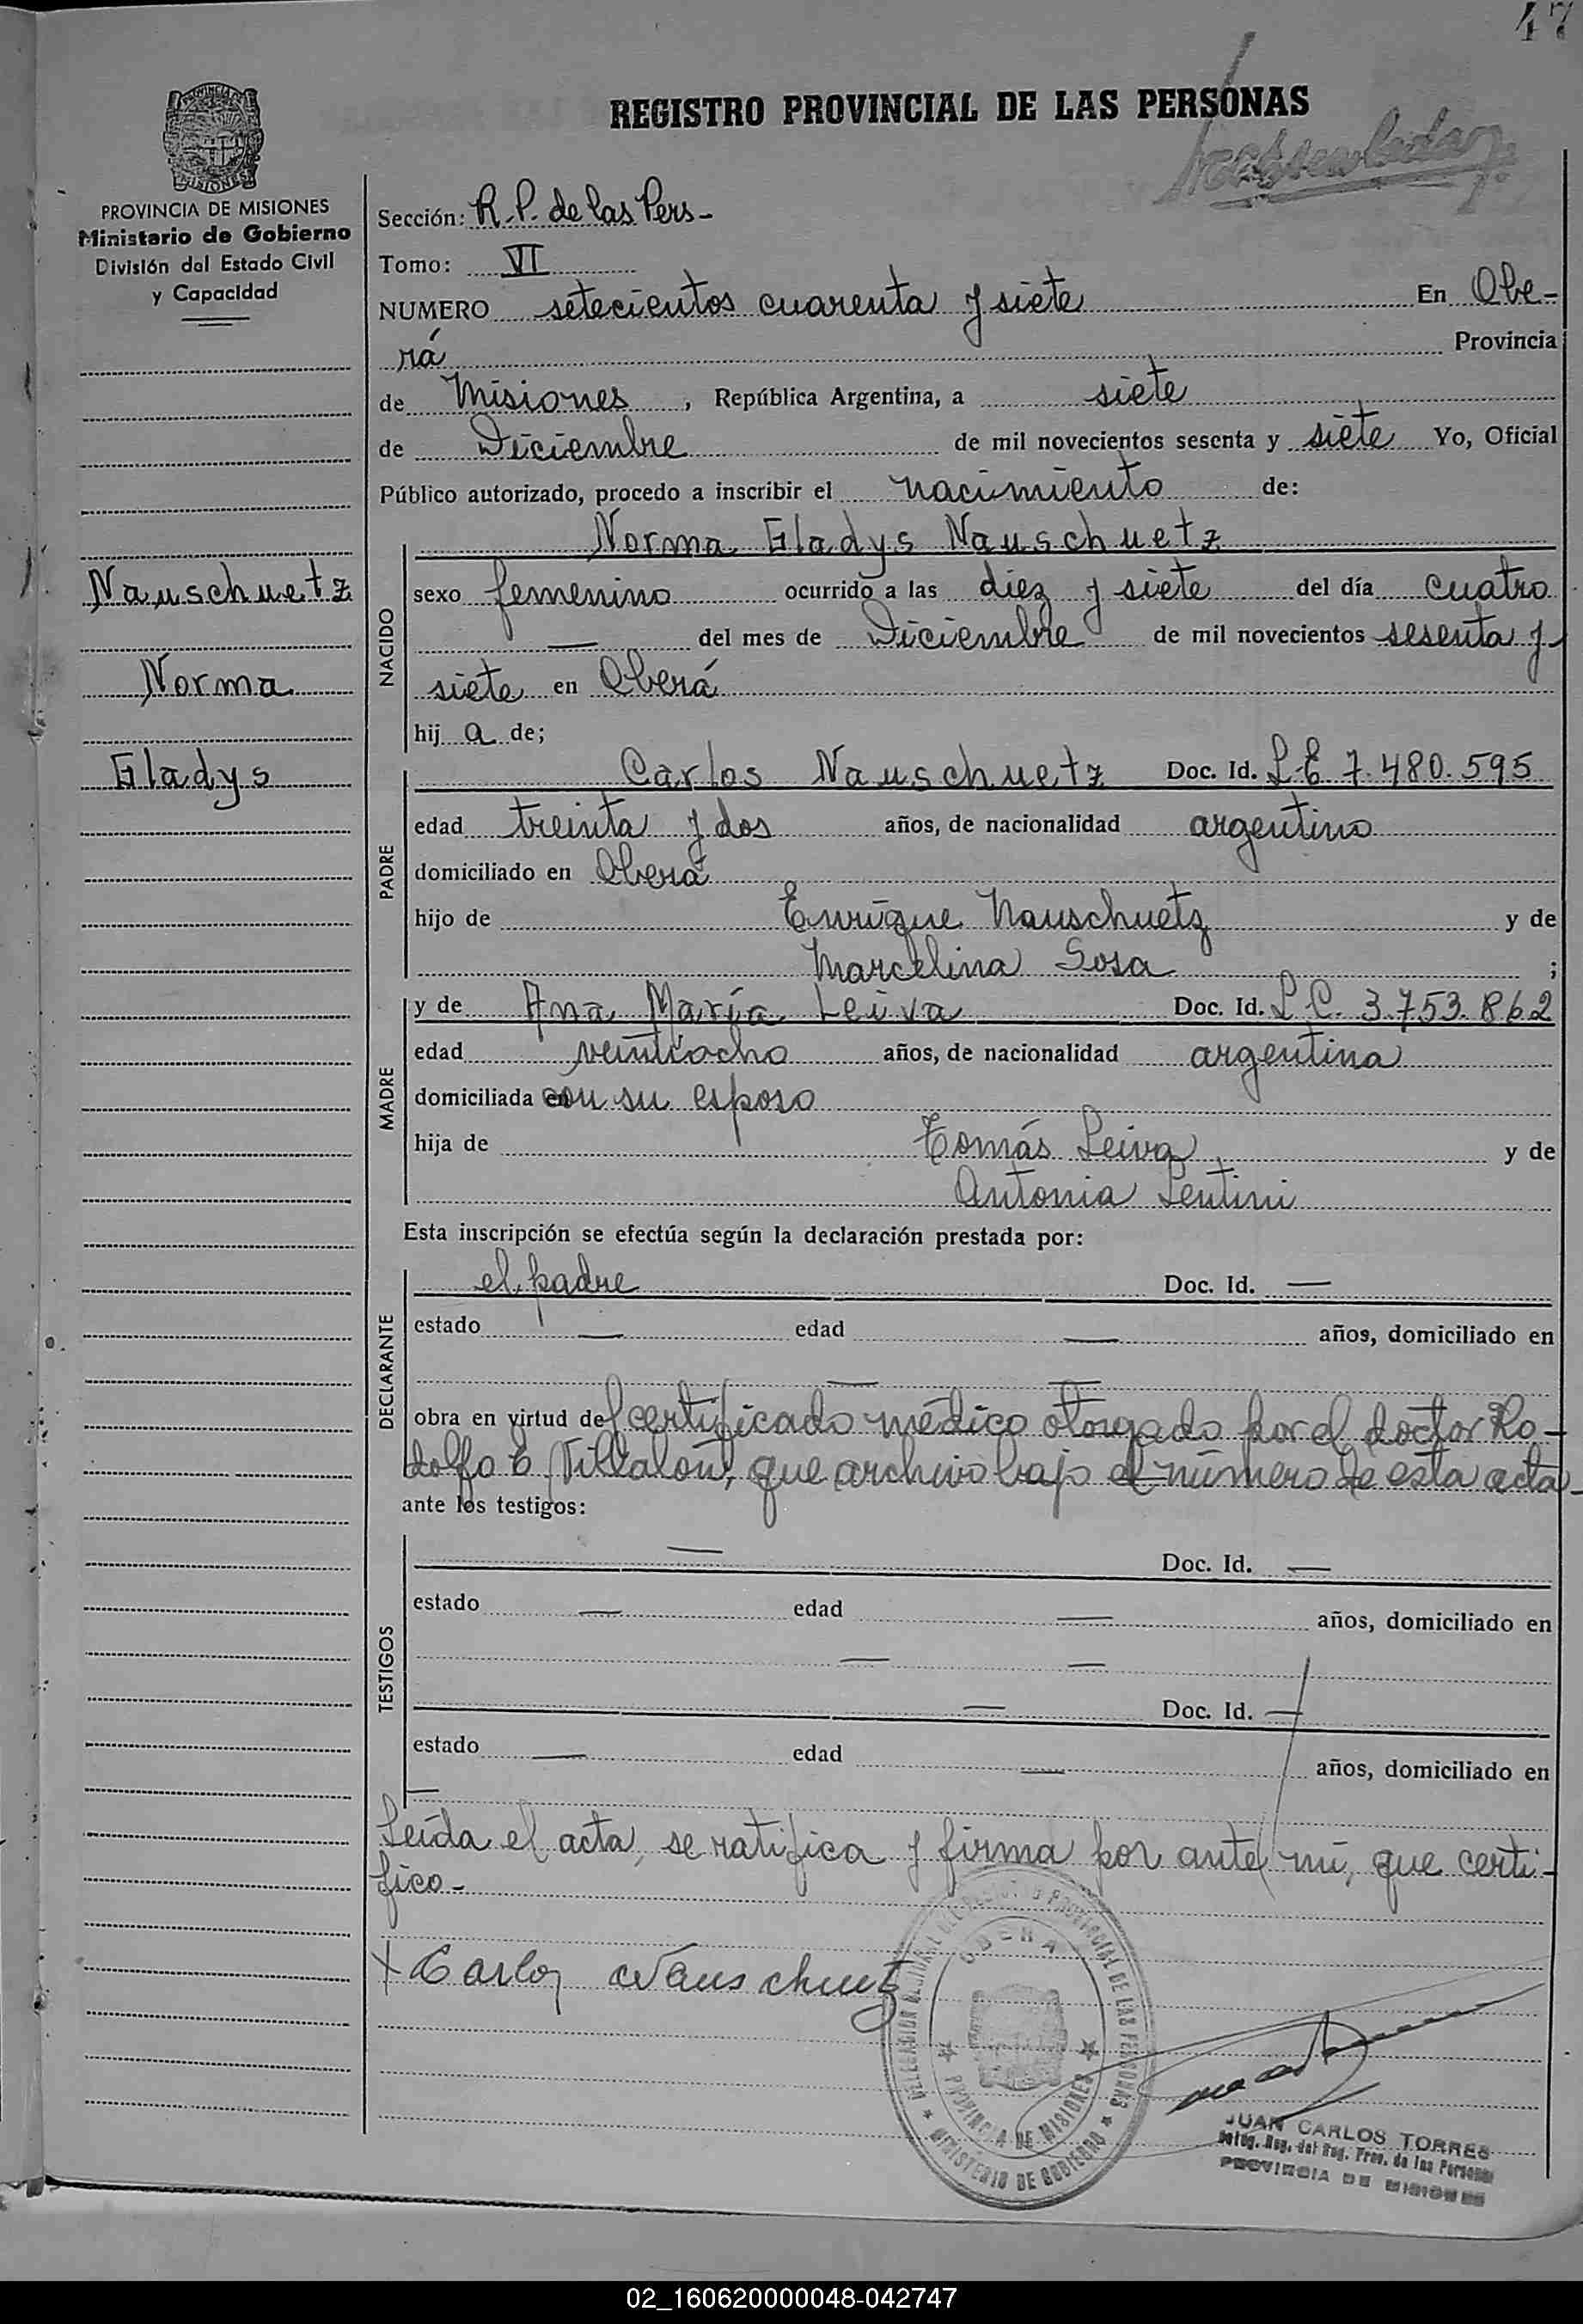 47
REGISTRO PROVINCIAL DE LAS PERSONAS
PROVINCIA DE MISIONES
Ministerio de Gobierno
División del Estado Civil
y Capacidad
Nauschuetz
Norma
Gladys
Sección: R.P. de las Pers-
Tomo: VI
NUMERO setecientos cuarenta y siete En Obe-
rá Provincia
de Misiones, República Argentina, a siete
de Diciembre de mil novecientos sesenta y siete Yo, Oficial
Público autorizado, procedo a inscribir el nacimiento de:
NACIDO
Norma Gladys Nauschuetz
sexo femenino ocurrido a las diez y siete del día cuatro
— del mes de Diciembre de mil novecientos sesenta y
siete en Oberá
hij a de;
PADRE
Carlos Nauschuetz Doc. Id. L E 7.480.595
edad treinta y dos años, de nacionalidad argentino
domiciliado en Oberá
hijo de Enrique Nauschuetz y de
Marcelina Sosa ;
MADRE
y de Ana María Leiva Doc. Id. L.C. 3.753.862
edad veintiocho años, de nacionalidad argentina
domiciliada con su esposo
hija de Tomás Leiva y de
Antonia Lentini
Esta inscripción se efectúa según la declaración prestada por:
DECLARANTE
el padre Doc. Id. —
estado — edad — años, domiciliado en
— —
obra en virtud del certificado médico otorgado por el doctor Ro-
dolfo Villalón, que archivo bajo el número de esta acta-
ante los testigos:
TESTIGOS
— Doc. Id. —
estado — edad — años, domiciliado en
— —
— Doc. Id. —
estado — edad — años, domiciliado en
—
Leída el acta, se ratifica y firma por ante mí, que certi-
fico-
+ Carlos Nauschuetz
DELEGACION REGIONAL DEL REGISTRO PROVINCIAL DE LAS PERSONAS
OBERA
PROVINCIA DE MISIONES
MINISTERIO DE GOBIERNO
JUAN CARLOS TORRES
Deleg. Reg. del Reg. Prov. de las Personas
PROVINCIA DE MISIONES
02_160620000048-042747